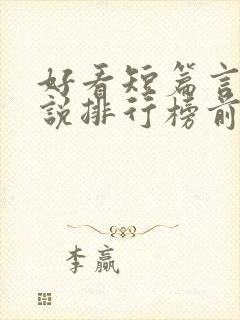 好看短篇言
说排行榜前
李赢